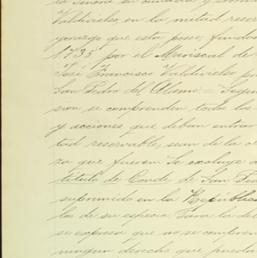 Valdivielso, en la mitad reser
yorazgo que este posee, funda
1735 por el Mariscal de
José Francisco Valdivielso
San Pedro del Alamo. = Supe
sion se comprenden todas las
y acciones que deban entrar
tad reservable, sean de la cla
ra que fueren. Se excluye
título de Conde de San
suprimido en la República
las de su especie. Para la de
se expresa que no se compren
ningun derecho que pueda